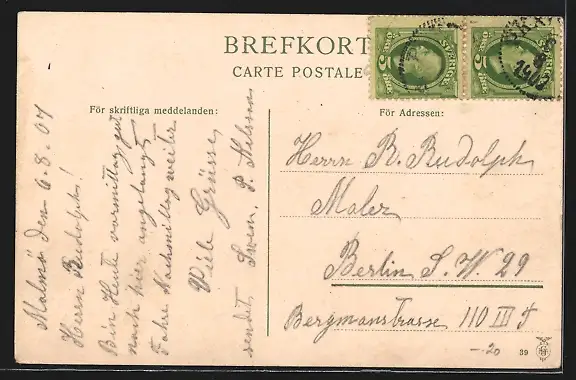 BREFKORT
CARTE POSTALE
För skriftliga meddelanden:
För Adressen:
Malmö den 6.8.07
Herrn Rudolph!
Bin Heute vormittag gut
nach hier angelangt
Fahre Nachmittag weiter
Viele Grüsse
sendet Swen. P. Nilsson
Herrn R. Rudolph
Maler
Berlin S. W. 29
Bergmanstrasse 110 III
-.20
39
SVERIGE
5
5
SVERIGE
5
5